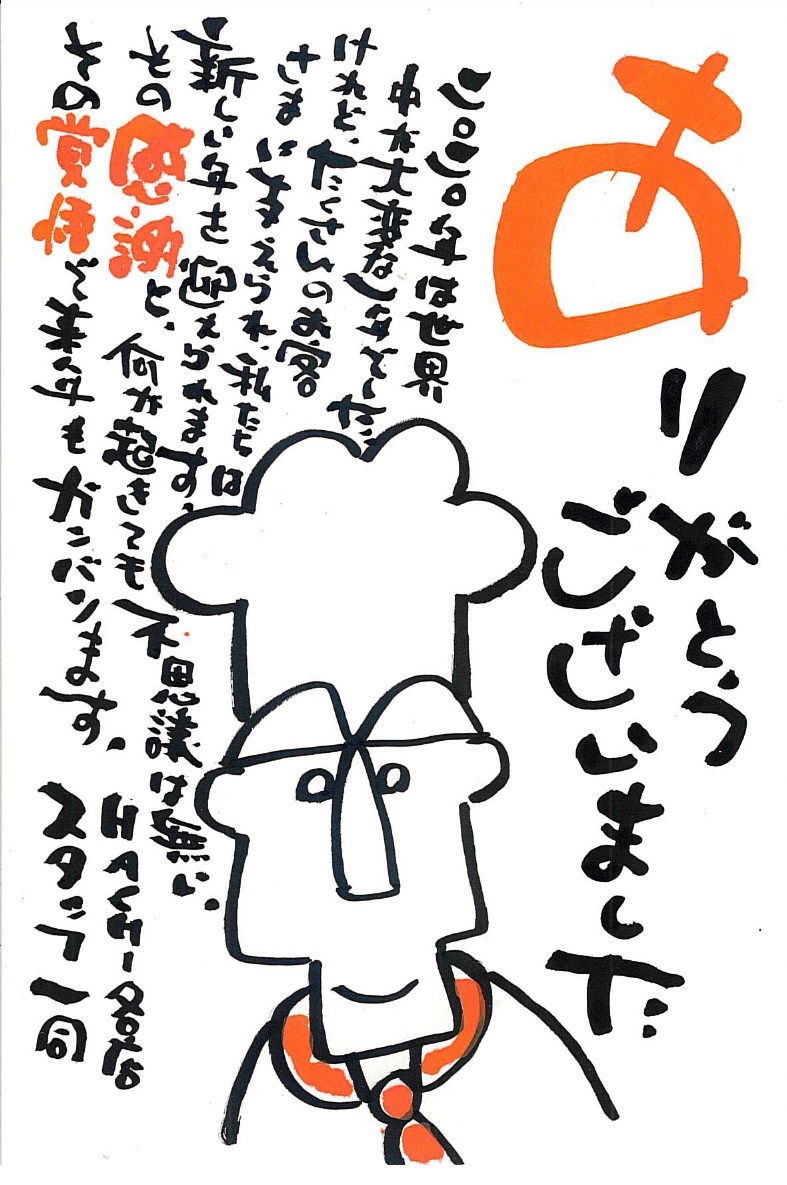 ありがとう
ございました
二〇二〇年は世界
中が大変な年でした
けれど、たくさんのお客
さまにささえられ、私たちは
新しい年を迎えられます。
その感謝と、何が起きても不思議は無い。
その覚悟で美年もガンバリます。
各店
スタッフ一同